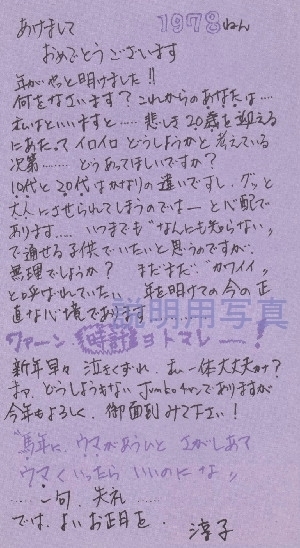 1978ねん
あけまして
おめでとうございます
年がやっと明けました!!
何をなさいます? これからのあなたは‥‥
私はといいますと‥‥ 悲しき20歳を迎える
にあたって イロイロ どうしようかと 考えている
次第‥‥‥ どうあってほしいですか?
10代と20代はかなりの違いですし、グッと
大人にさせられてしまうのでは— と心配で
あります‥‥ いつまでも"なんにも知らない〃
で通せる子供でいたいと思うのですが、
無理でしょうか? まだまだ"カワイイ〃
と呼ばれていたい、 年を明けての今の正
直な心境であります
説明用写真
ワァーン 時計 ヨトマレー!
新年早々 泣きくずれ、私一体大丈夫か?
まァ、どうしようもない Junkoチャンでありますが
今年もよろしく、御面到みて下さい!
"馬年に、ウマがあうひと さがしあて
ウマくいったら いいのに な〃
‥‥一句、失礼‥‥‥
では、よいお正月を、
淳子